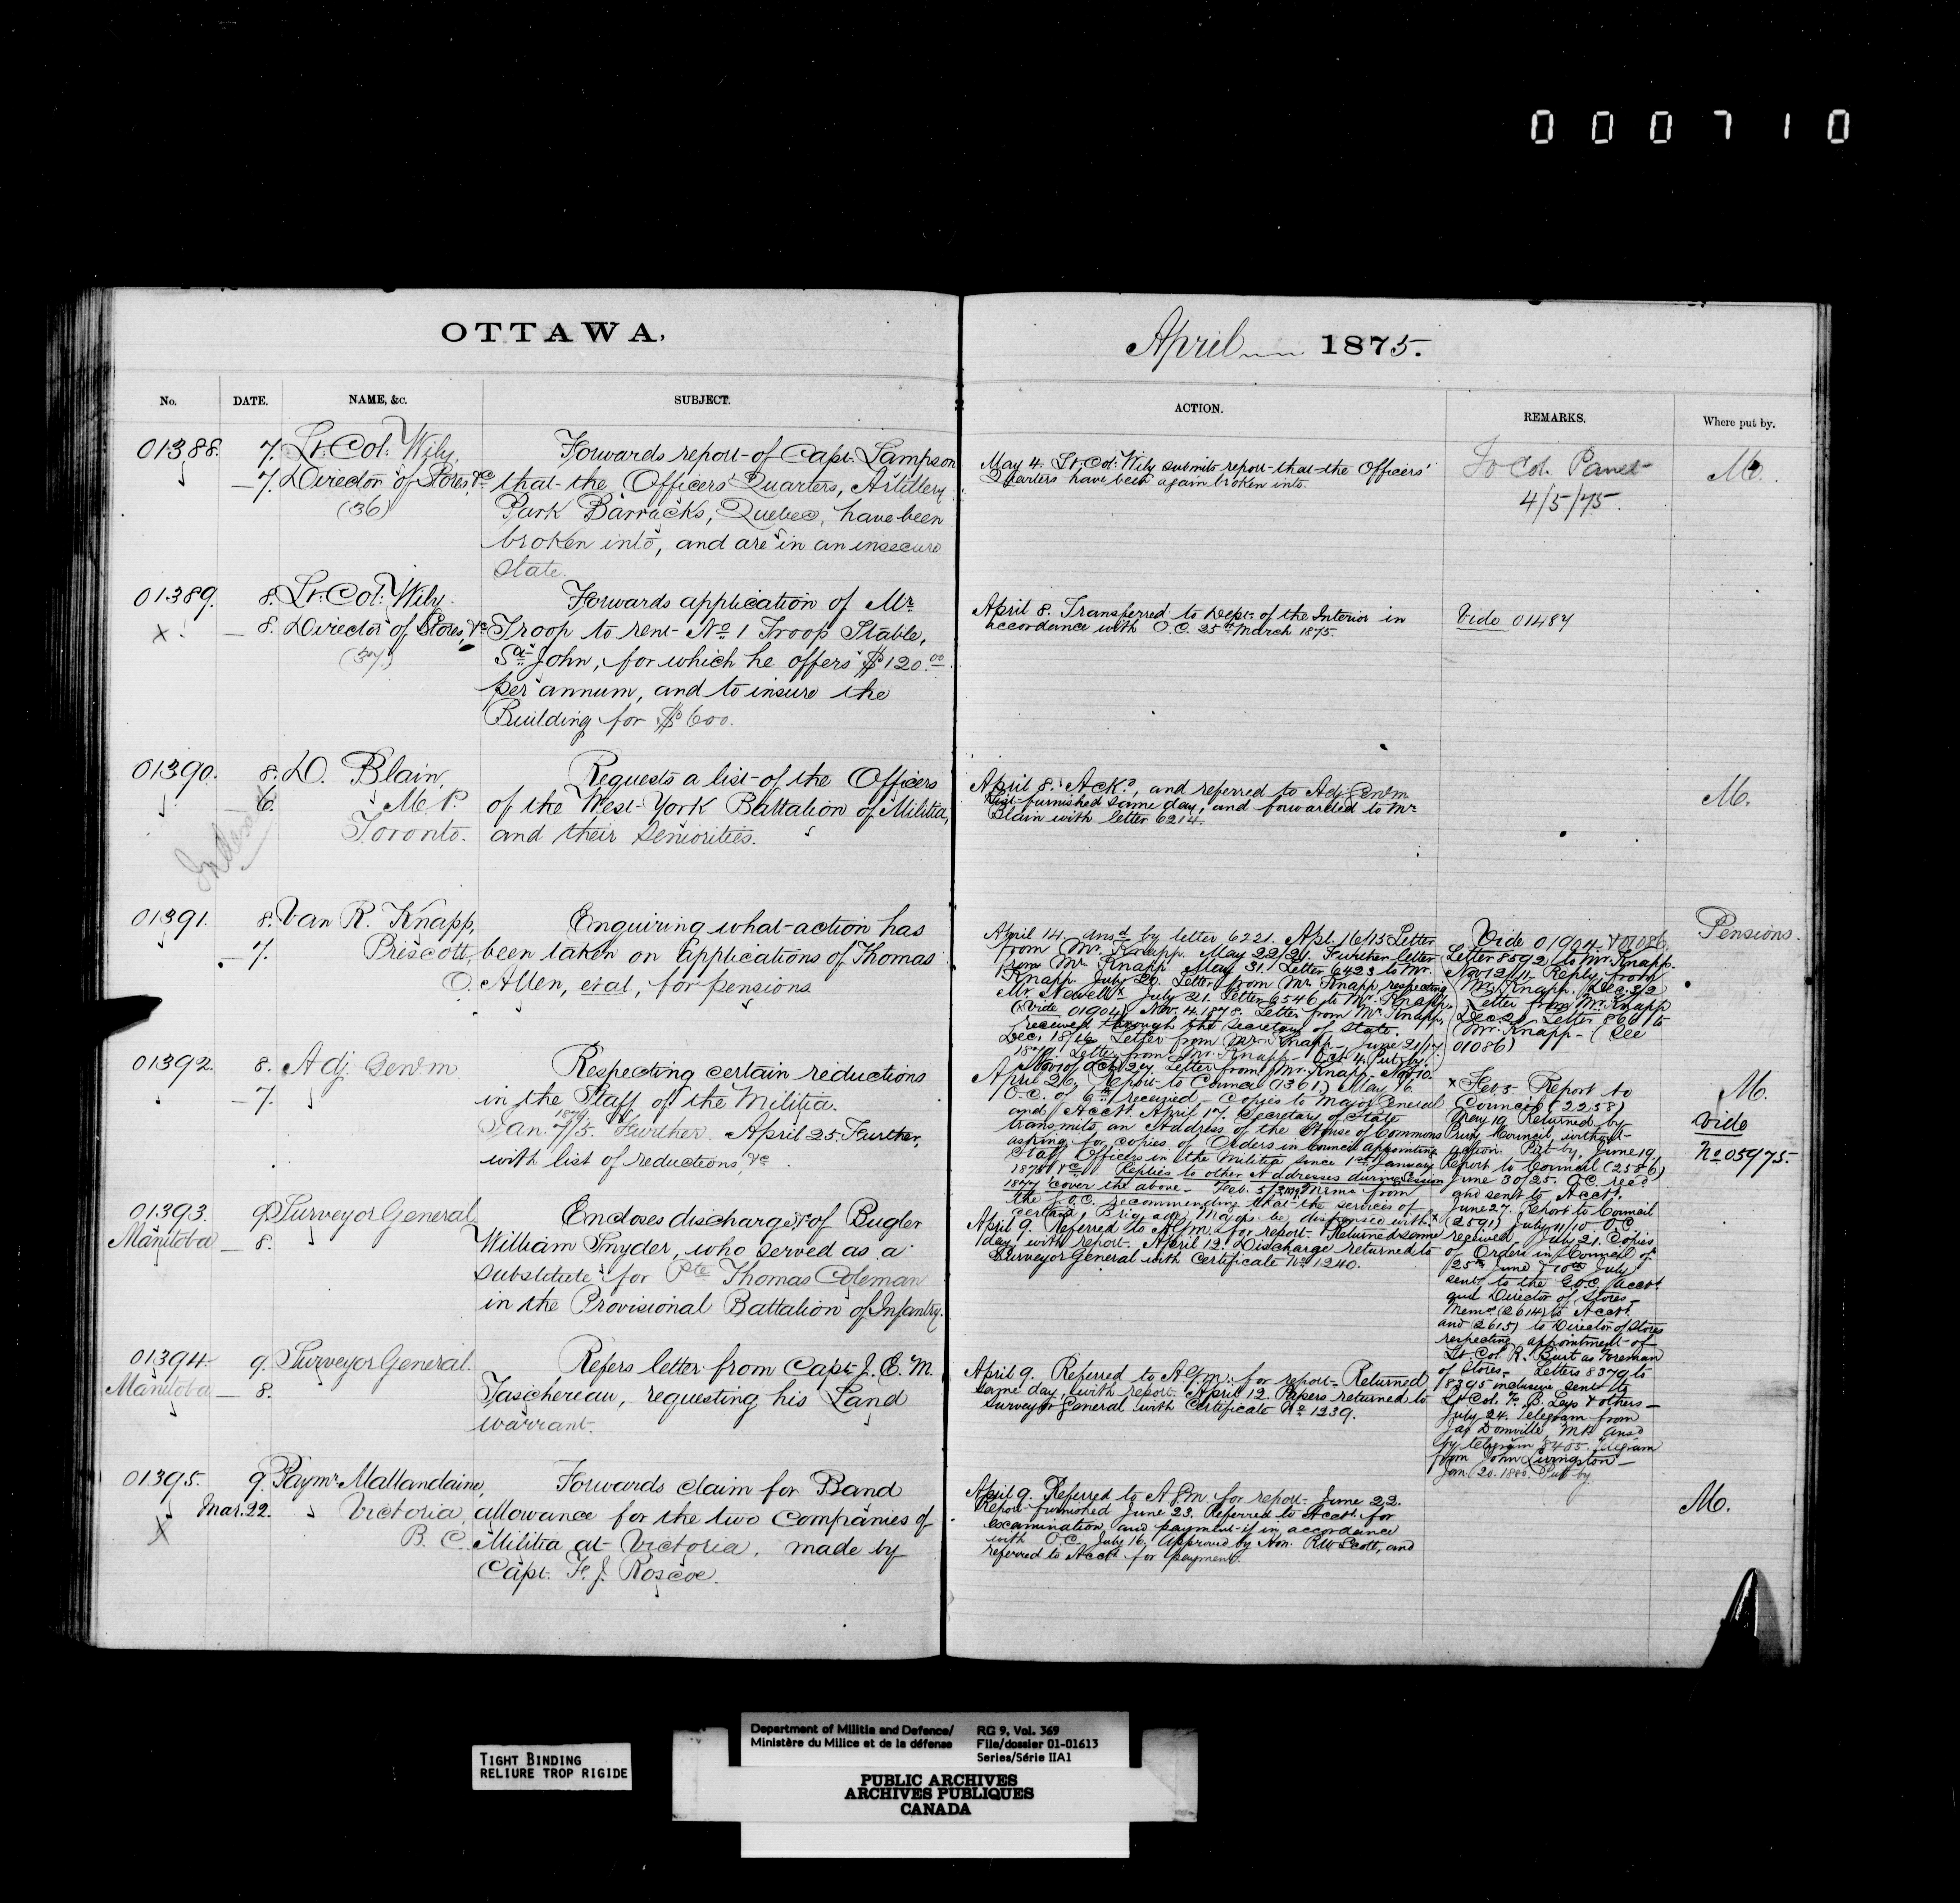 000710
OTTAWA,
No.
DATE.
NAME, &c.
SUBJECT.
01388.
7.
—7.
Lt. Col: Wily,
Director of Stores, &c
(36)
Forwards report of Capt. Lampson
that the Officers' Quarters, Artillery
Park Barracks, Quebec, have been
broken into, and are in an insecure
state.
01389.
x
8.
— 8.
Lt. Col: Wily
Director of Stores, &c
(37)
Forwards application of Mr
Troop to rent No 1 Troop Stable,
St John, for which he offers $120.00
per annum, and to insure the
Building for $600.
01390.
8.
— 6.
D. Blain,
M. P.
Toronto.
Requests a list of the Officers
of the West York Battalion of Militia,
and their Seniorities.
01391.
8.
—7.
Van R. Knapp,
Prescott,
Enquiring what action has
been taken on applications of Thomas
O. Allen, et al, for pensions
01392.
8.
—7.
Adj. Gen. m
Respecting certain reductions
in the Staff of the Militia.
Jan. 7/5. Further. April 25. Further,
with list of reductions, &c.
01393.
Manitoba
9.
— 8.
Surveyor General
Encloses discharge, &c of Bugler
William Snyder, who served as a
substitute for Pte Thomas Coleman
in the Provisional Battalion of Infantry.
01394.
Manitoba
9.
— 8.
Surveyor General.
Refers letter from Capt. J. E. M.
Taschereau, requesting his Land
warrant.
01395.
X
9.
Mar. 22.
Paymr Mallandaine,
Victoria,
B. C.
Forwards claim for Band
allowance for the two Companies of
Militia at Victoria, made by
Capt. F. J. Roscoe.
April 1875.
ACTION.
REMARKS.
Where put by.
May 4. Lt. Col: Wily submits report that the Officers'
Quarters have been again broken into.
To Col. Panet
4/5/75.
M.
April 8. Transferred to Dept. of the Interior in
accordance with O.C. 25th March 1875.
Vide 01487
April 8. Ackd, and referred to Adj. Gen. m
List furnished same day, and forwarded to Mr
Blain with letter 6214.
M.
April 14. ansd by letter 6221. Apl. 16/15 Letter
from Mr. Knapp. May 22/21. Further letter
from Mr Knapp. May 31. Letter 6423 to Mr.
Knapp. July 20. Letter from Mr Knapp respecting
Mr. Newell. July 21. Letter 6546 to Mr. Knapp.
(Vide 01904) Nov. 4. 1878. Letter from Mr Knapp,
received through the Secretary of State.
Dec. 18/16. Letter from Mr. Knapp – June 21/17.
Letter from Mr. Knapp – Oct 4. Put by.
Nov 10/ Oct 29. Letter from Mr. Knapp.
Vide 01904 & 01086.
Letter 8592 to Mr. Knapp.
Nov 12/11. Reply from
Mr. Knapp. Dec. 3/2
Letter from Mr. Knapp
Dec. 20. Letter 8661 to
Mr. Knapp – (See
01086)
Pensions.
April 26. Report to Council (1361.) May 16.
O.C. of 6th received – Copies to Major General
and Acct. April 17. Secretary of State
transmits an Address of the House of Commons
asking for copies of Orders in Council appointing
Staff Officers in the Militia since 1st January
1875, &c. Replies to other Addresses during Session
1877 cover the above – Feb. 5/ Memo from
the G.O.C. recommending that the services of
certain Brig. and Majors be dispensed with. x
x Feb 5 – Report to
Council (2258)
May 19. Returned by
Privy Council, without
action. Put by. June 19.
Report to Council (2586)
June 30/25. O.C. recd
and sent to Acct.
June 27. Report to Council
(2591) July 11/10 O.C.
received, July 21. Copies
of Orders in Council of
25th June & 10th July
sent to the G.O.C. Acct.
and Director of Stores –
Memos (2614) to Acct.
and (2615) to Director of Stores
respecting appointment of
Lt. Col. R. Burt as Foreman
of Stores – Letters 8379 to
8395 inclusive sent to
Lt. Col. F. B. Leys & others –
July 24. Telegram from
Jas Domville, MP. ansd
by telegram 8405. Telegram
from John Livingston –
Jan. 20. 1880. Put by
M.
Vide
No 05975.
April 9. Referred to A.G.m. for report. Returned same
day with report. April 12. Discharge returned to
Surveyor General with Certificate No 1240.
April 9. Referred to A.G.m. for report. Returned
same day, with report. April 12. Papers returned to
Surveyor General with Certificate No 1239.
April 9. Referred to A.G.m. for report. June 22.
Report furnished June 23. Referred to Acct. for
examination, and payment if in accordance
with O.C. July 16. Approved by Hon. R.W. Scott, and
referred to Acct for payment.
M.
TIGHT BINDING
RELIURE TROP RIGIDE
Department of Militia and Defence/
Ministère du Milice et de la défense
RG 9, Vol. 369
File/dossier 01-01613
Series/Série IIA1
PUBLIC ARCHIVES
ARCHIVES PUBLIQUES
CANADA